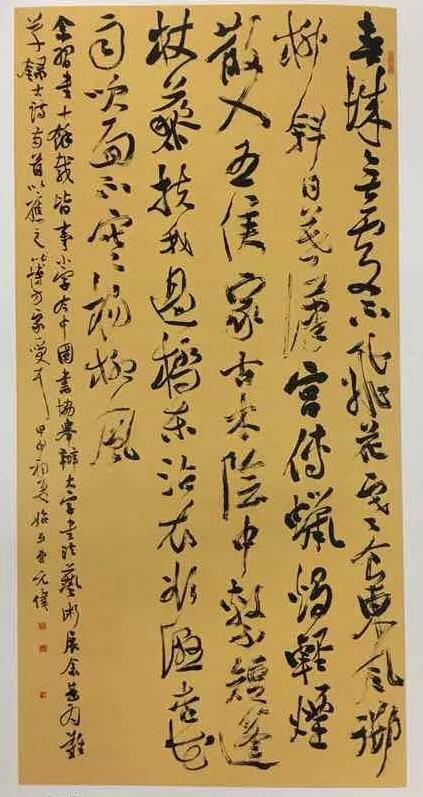 春城無處不飛花寒食東風御
柳斜日暮漢宮傳蠟燭輕煙
散入五侯家古木陰中繫短篷
杖藜扶我過橋東沾衣欲濕杏花
雨吹面不寒楊柳風
余習書十餘載皆事小字今中國書協舉辦大字書法藝術展余甚為難
草錄古詩兩首以應之以博方家一笑耳 甲申初夏